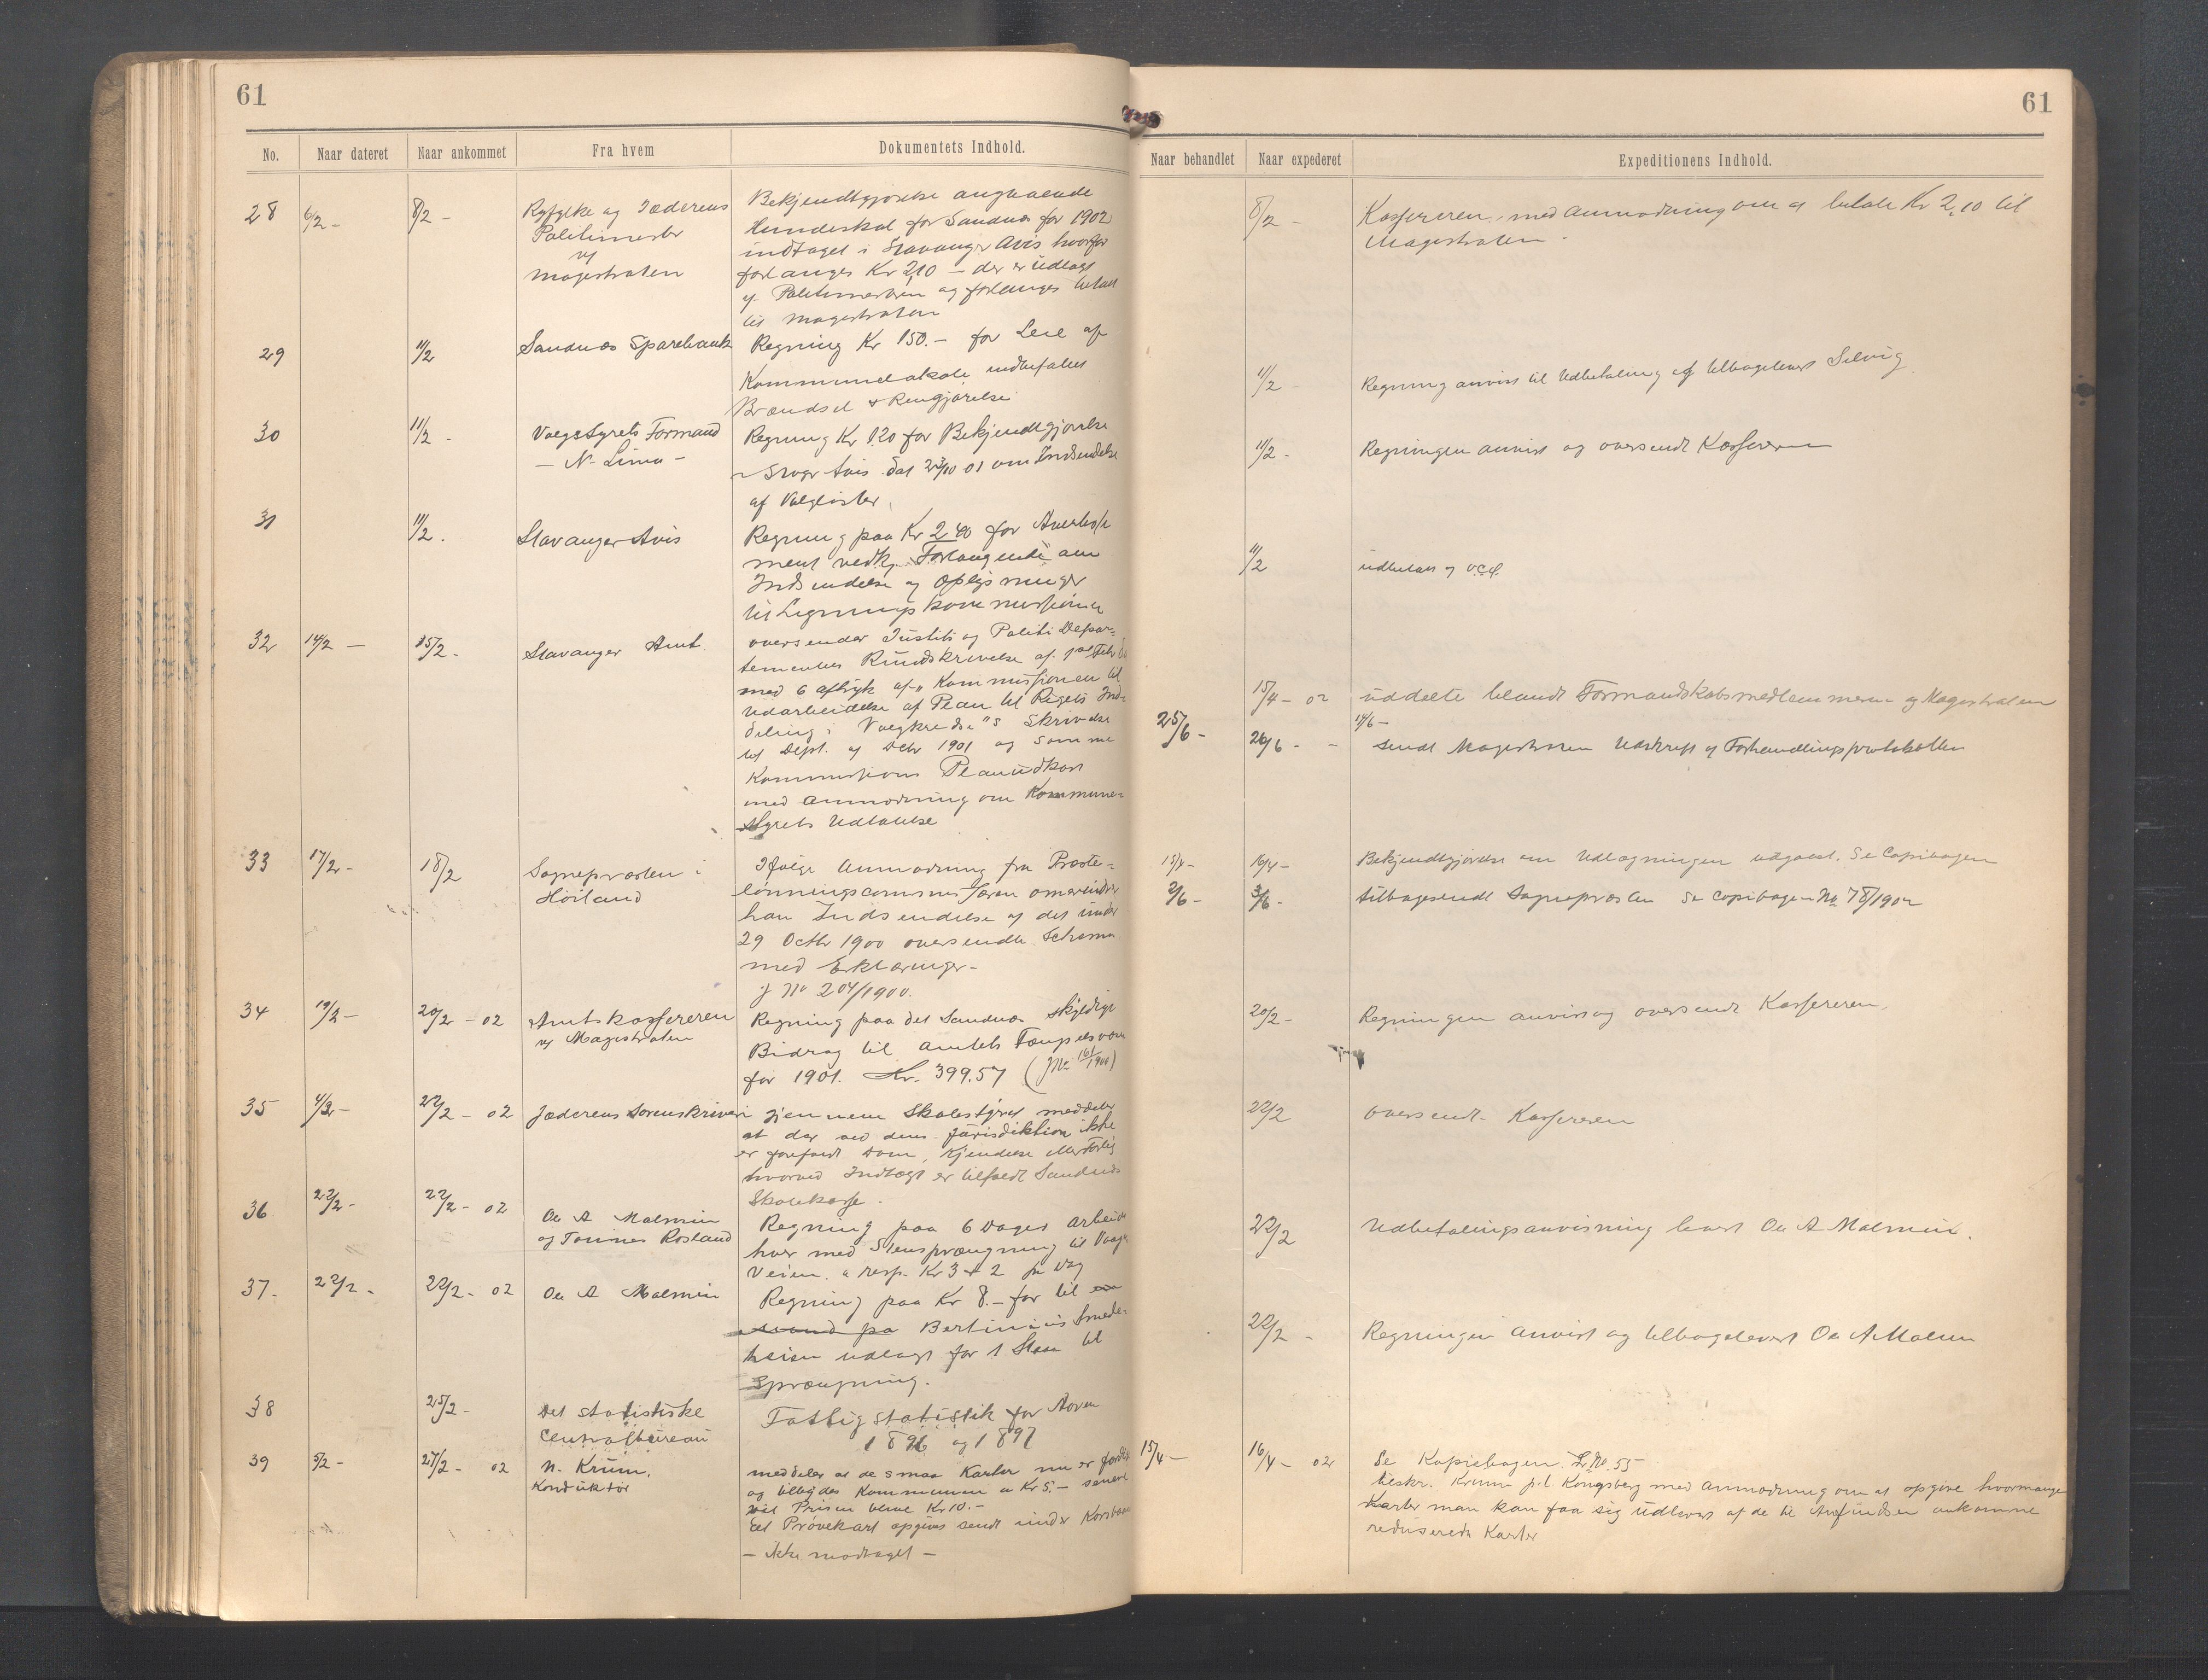 61
No.
Naar dateret
Naar ankommet
Fra hvem
Dokumentets Indhold.
28
6/2 -
8/2 -
Ryfylke og Jæderens
Politimester
v/
Magistraten
Bekjendtgjørelse angaaende
Hundeskat for Sandnæs for 1902
indtaget i Stavanger Avis hvorfor
forlanges Kr 2,10 - der er udlagt
af Politimesteren og forlanges betalt
til Magistraten
29
11/2
Sandnæs Sparebank
Regning Kr 150.- for Leie af
Kommunelokale, indbefattet
Brændsel & Rengjørelse
30
11/2 -
Valgstyrets Formand
- N. Lima -
Regning Kr 1.20 for Bekjendtgjørelse
i Stvgr Avis dat 23/10 01 om Indsendelse
af Valglister.
31
11/2.
Stavanger Avis
Regning paa Kr 2.40 for Avertisse
ment vedk. Forlangende om
Indsendelse af Oplysninger
til Ligningskommissionen
32
14/2 -
15/2 -
Stavanger Amt.
oversender Justits og Politi Depar=
tementets Rundskrivelse af 1st Febr
med 6 aftryk af "Kommissionen til
Udarbeidelse af Plan til Rigets Ind=
deling i Valgkredse"s Skrivelse
til Dept. af Debr 1901 og samme
Kommissions Planudkast
med Anmodning om Kommune=
styrets Udtalelse
33
17/2 -
18/2
Sognepræsten i
Höiland
Ifølge Anmodning fra Præste=
lønningscommissionen omerindrer
han Indsendelse af det under
29 Octbr 1900 oversendte Schema
med Erklæringer -
jf No 204/1900.
34
19/2 -
20/2 - 02
Amtskassereren
v/ Magistraten
Regning paa det Sandnæs skyldige
Bidrag til Amtets Fængselsvæsen
for 1901. Kr. 399.57 (JNo 161/1900)
35
4/2 -
22/2 - 02
Jæderens Sorenskriveri
gjennem Skolestyret meddeler
at der ved dens Jurisdiktion ikke
er forefaldt Dom, Kjendelse eller Forlig
hvorved Indtægt er tilfaldt Sandnæs
Skolekasse.
36
22/2 -
22/2 - 02
Ole A Malmin
og Tönnes Rosland
Regning paa 6 Dages Arbeide
hver med Stensprængning til Vaags
Veien. a resp. Kr 3 & 2 pr Dag
37.
22/2 -
22/2 - 02
Ole A Malmin
Regning paa Kr 8.- for til
pa Bertinius Smede=
heien udlagt for 1 Sten til
Sprængning.
38
25/2 -
Det statistiske
Centralbureau
Fattigstatistik for Aarene
1896 og 1897
39
5/2 -
27/2 - 02
N. Krüm,
Konduktör
meddeler at de smaa Karter nu er færdige
og tilbydes Kommunen a Kr 5.- senere
vil Prisen blive Kr 10.-
Eet Prövekart opgives sendt under Korsbaand
- ikke modtaget -
61
Naar behandlet
Naar expederet
Expeditionens Indhold.
8/2 -
Kassereren, med Anmodning om at betale Kr 2,10 til
Magistraten.
11/2 -
Regning anvist til Udbetaling og tilbageleveret Selvig
11/2 -
Regningen anvist og oversendt Kassereren
11/2
udbetalt
15/4 - 02
uddelte blandt Formandskabsmedlemmerne og Magistraten
17/6 -
25/6 -
26/6 - -
sendt Magistraten Udskrift af Forhandlingsprotokollen
15/4 -
16/4 -
Bekjendtgjørelse om Udlægningen udgaaet. Se Copibogen
2/6 -
3/6 -
tilbagesendt Sognepræsten Se Copibogen No 78/1902
20/2 -
Regningen anvist og oversendt Kassereren.
22/2
oversendt Kassereren
22/2
Udbetalingsanvisning levert Ole A Malmin.
22/2 -
Regningen anvist og tilbagelevert Ole A Malmin
15/4 -
16/4 - 02
Se Kopiebogen. LNo. 55
tilskr. Krüm p.t. Kongsberg med Anmodning om at opgive hvormange
Karter man kan faa sig udleveret af de til ankomne
reduserede Karter